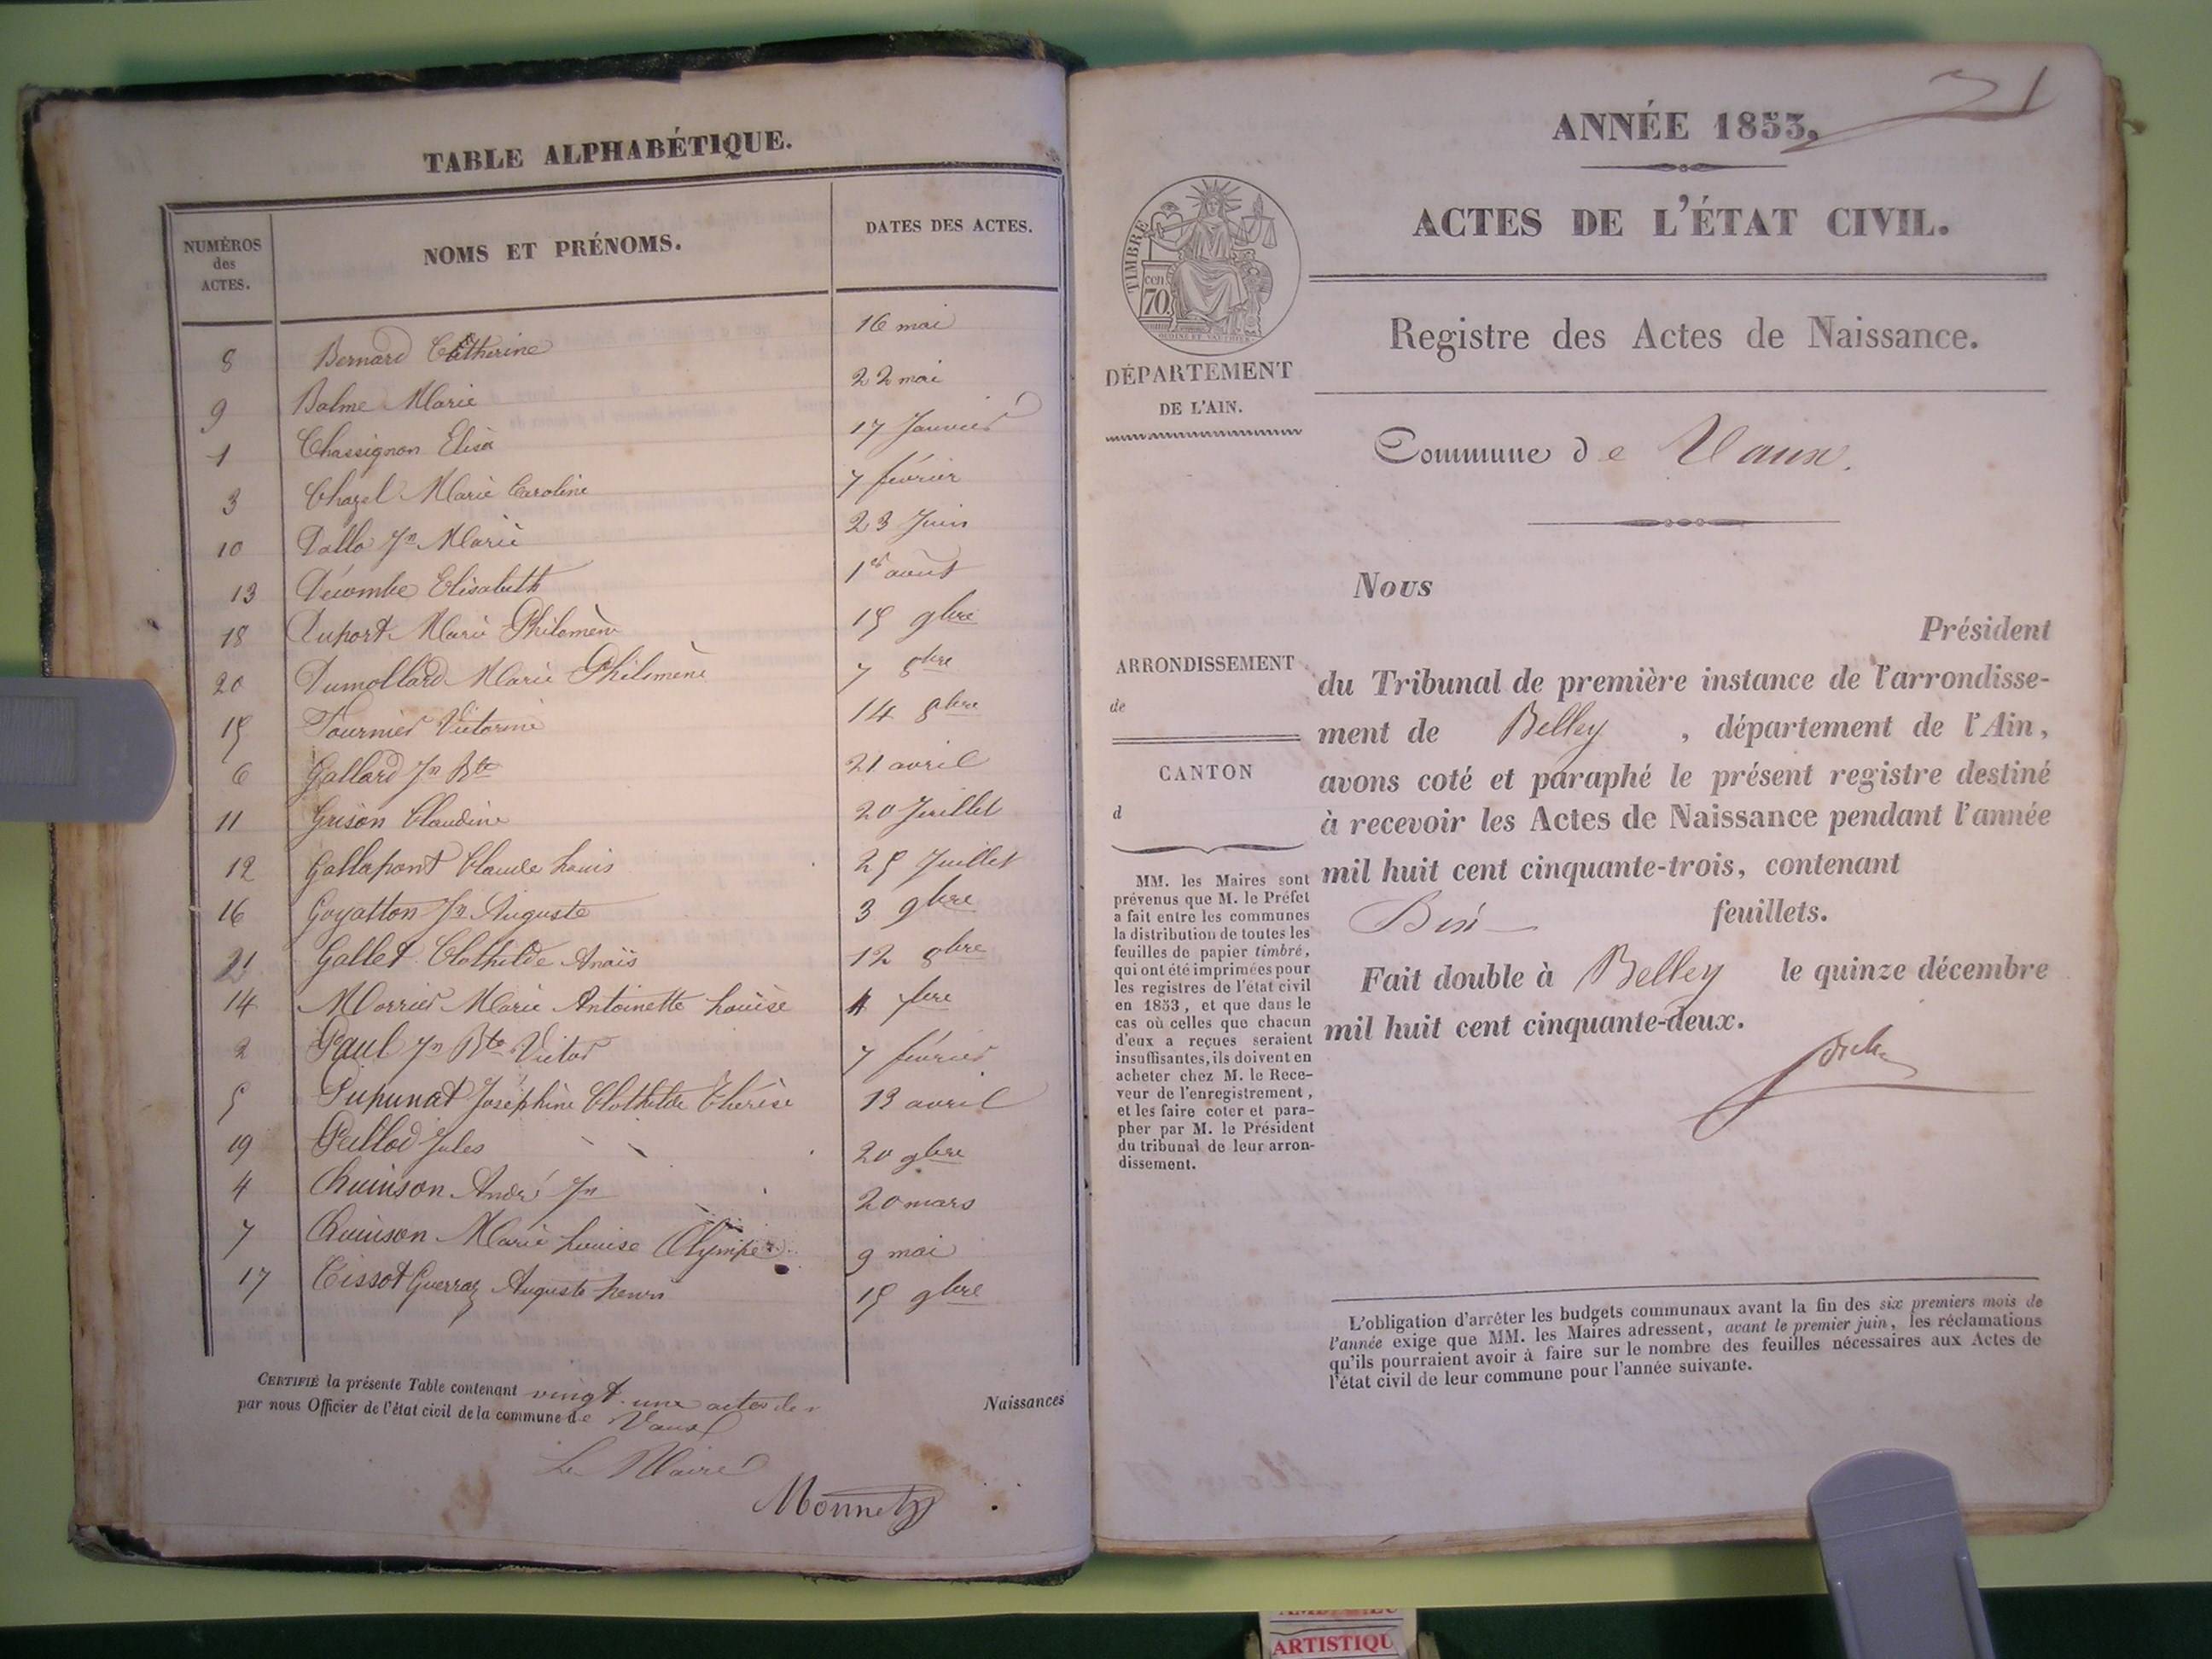 TABLE ALPHABÉTIQUE.
NUMÉROS des ACTES.
NOMS ET PRÉNOMS.
DATES DES ACTES.
8 Bernard Cétherine 16 mai
9 Balme Marie 22 mai
1 Chassignon Elisa 17 Janvier
3 Chazel Marie Caroline 7 février
10 Dallo Jn Marie 23 Juin
13 Décombe Elisabeth 1er août
18 Duport Marie Philomène 15 9bre
20 Dumollard Marie Philomène 7 8bre
15 Fournier Victorine 14 8bre
6 Gallard Jn Bte 21 avril
11 Grison Claudine 20 Juillet
12 Gallapont Claude Louis 25 Juillet
16 Goyatton Jn Auguste 3 9bre
21 Gallet Clothilde Anaïs 12 8bre
14 Morrier Marie Antoinette Louise 4 7bre
2 Paul Jn Bte Victor 7 février
5 Pupunat Joséphine Clothilde Thérèse 13 avril
19 Peillod Jules 20 9bre
4 Quinson André Jn 20 mars
7 Quinson Marie Louise Olympe 9 mai
17 Tissot Guerraz Auguste henri 15 9bre
CERTIFIÉ la présente Table contenant vingt-une actes de Naissances
par nous Officier de l'état civil de la commune de Vaux
Le Maire
Monnetz
21
ANNÉE 1853,
ACTES DE L'ÉTAT CIVIL.
TIMBRE
70 cen
DÉPARTEMENT
DE L'AIN.
Registre des Actes de Naissance.
Commune de Vaux.
Nous
Président
du Tribunal de première instance de l'arrondisse-
ment de Belley, département de l'Ain,
avons coté et paraphé le présent registre destiné
à recevoir les Actes de Naissance pendant l'année
mil huit cent cinquante-trois, contenant
feuillets.
Fait double à Belley le quinze décembre
mil huit cent cinquante-deux.
ARRONDISSEMENT
de
CANTON
d
MM. les Maires sont
prévenus que M. le Préfet
a fait entre les communes
la distribution de toutes les
feuilles de papier timbré,
qui ont été imprimées pour
les registres de l'état civil
en 1853, et que dans le
cas où celles que chacun
d'eux a reçues seraient
insuffisantes, ils doivent en
acheter chez M. le Rece-
veur de l'enregistrement,
et les faire coter et para-
pher par M. le Président
du tribunal de leur arron-
dissement.
L'obligation d'arrêter les budgets communaux avant la fin des six premiers mois de
l'année exige que MM. les Maires adressent, avant le premier juin, les réclamations
qu'ils pourraient avoir à faire sur le nombre des feuilles nécessaires aux Actes de
l'état civil de leur commune pour l'année suivante.
ARTISTIQU